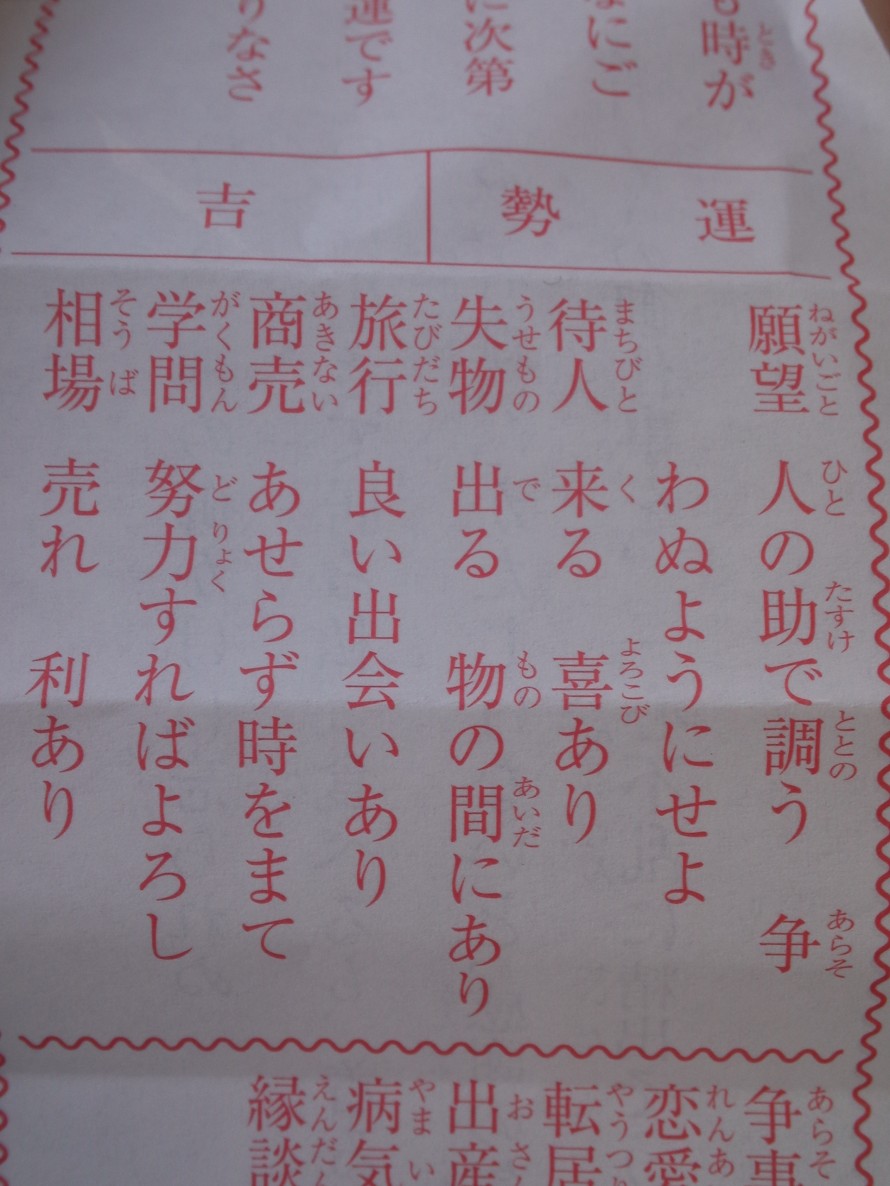 も時が
なにご
に次第
運です
りなさ
運勢 吉
願望 人の助で調う 争
わぬようにせよ
待人 来る 喜あり
失物 出る 物の間にあり
旅行 良い出会いあり
商売 あせらず時をまて
学問 努力すればよろし
相場 売れ 利あり
争事
恋愛
転居
出産
病気
縁談